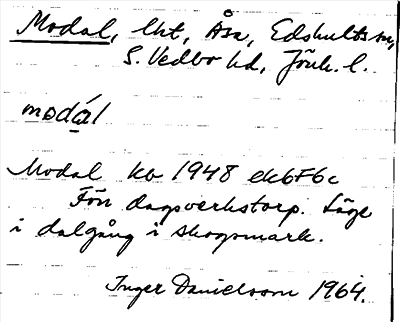 Modal, lht, Åsa, Edshults sn,
S. Vedbo hd, Jönk. l.
modál
Modal kb 1948 ek6F6c
Förr dagsverkstorp. Läge
i dalgång i skogsmark.
Inger Danielsson 1964.